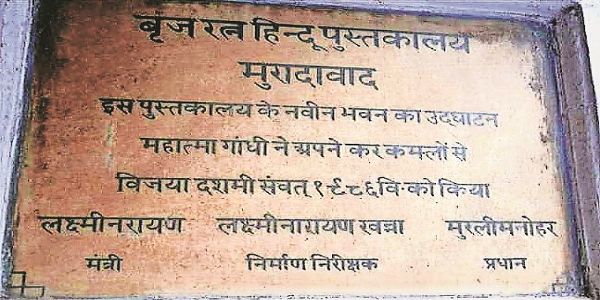 बृज रत्न हिन्दू पुस्तकालय
मुरादावाद
इस पुस्तकालय के नवीन भवन का उद्घाटन
महात्मा गांधी ने अपने कर कमलों से
विजया दशमी संवत् १९८६ वि॰ को किया
लक्ष्मीनरायण लक्ष्मीनारायण खन्ना मुरलीमनोहर
मंत्री निर्माण निरीक्षक प्रधान